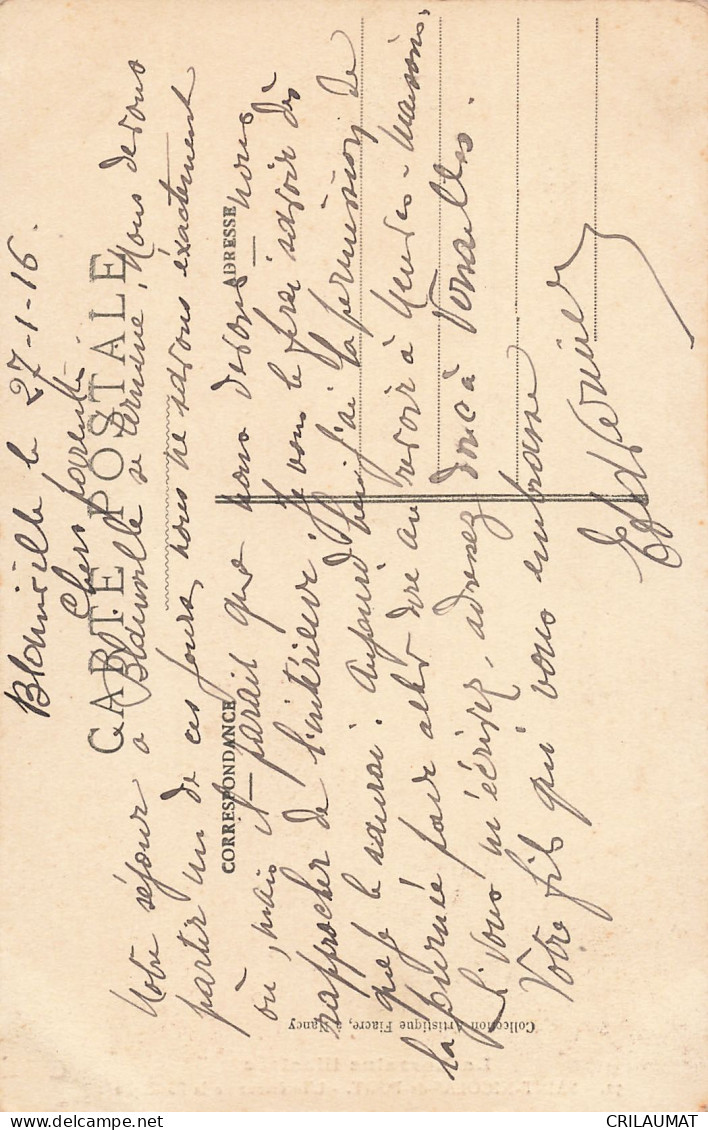 Blainville le 27-1-16.
Chers parents
Notre séjour a Blainville se termine, nous devons
partir un de ces jours, nous ne savons éxactement
où, mais il parait que nous devons nous
rapprocher de l'intérieur, je vous le ferai savoir dès
que je le saurai. Aujourd'hui j'ai la permission de
la journée pour aller dire au revoir à Meures-Maisons.
Si vous m'écrivez, adressez donc à Versailles.
Votre fils qui vous embrasse
CARTE POSTALE
CORRESPONDANCE
ADRESSE
Collection Artistique Fiacre, à Nancy
CRILAUMAT